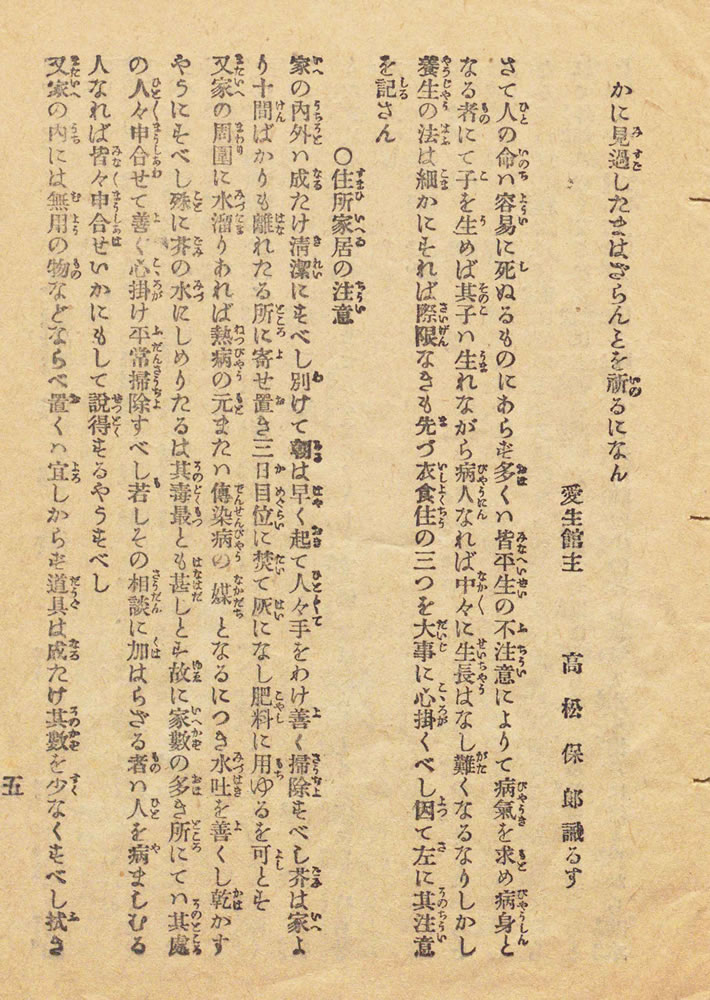 かに見過したまはざらんとを祈るになん
愛生館主　高松保郎識るす
さて人の命ハ容易に死ぬるものにあらず多くハ皆平生の不注意によりて病氣を求め病身と
なる者にて子を生めば其子ハ生れながら病人なれば中々に生長はなし難くなるなりしかし
養生の法は細かにすれば際限なきも先づ衣食住の三つを大事に心掛くべし因て左に其注意
を記さん
〇住所家居の注意
家の内外ハ成たけ清潔にすべし別けて朝は早く起て人々手をわけ善く掃除すべし芥は家よ
り十間ばかりも離れたる所に寄せ置き三日目位に焚て灰になし肥料に用ゆるを可とす
又家の周圍に水溜りあれば熱病の元またハ傳染病の媒となるにつき水吐を善くし乾かす
やうにすべし殊に芥の水にしめりたるは其毒最とも甚しとす故に家數の多き所にてハ其處
の人々申合せて善く心掛け平常掃除すべし若しその相談に加はらざる者ハ人を病ましむる
人なれば皆々申合せいかにもして說得するやうすべし
又家の内には無用の物などならべ置くハ宜しからず道具は成たけ其數を少なくすべし拭き
五